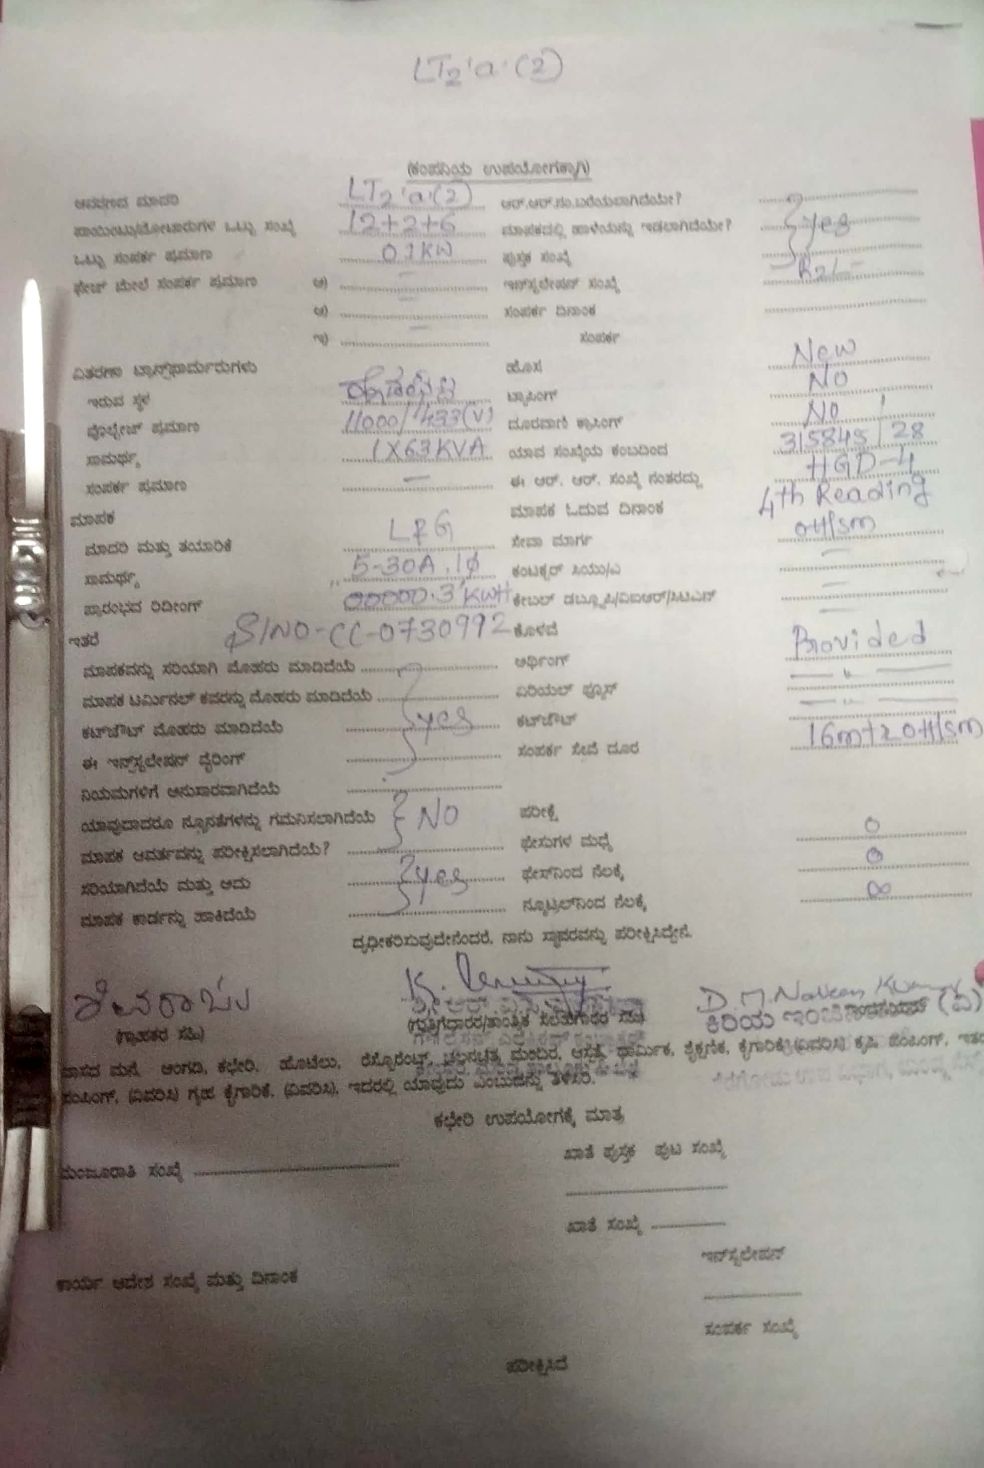 LT2'a'(2)
(ಕಂಪನಿಯ ಉಪಯೋಗಕ್ಕಾಗಿ)
ಆವರಣದ ಮಾದರಿ LT2'a'(2) ಆರ್.ಆರ್.ನಂ.ಬರೆಯಲಾಗಿದೆಯೇ?
ಪಾಯಿಂಟು/ಮೋಟಾರುಗಳ ಒಟ್ಟು ಸಂಖ್ಯೆ 12+2+6 ಮಾಪಕದಲ್ಲಿ ಹಾಳೆಯನ್ನು ಇಡಲಾಗಿದೆಯೇ? yes
ಒಟ್ಟು ಸಂಪರ್ಕ ಪ್ರಮಾಣ ಪುಸ್ತಕ ಸಂಖ್ಯೆ
ಫೇಜ್ ಮೇಲೆ ಸಂಪರ್ಕ ಪ್ರಮಾಣ ಅ) — ಇನ್‌ಸ್ಟಲೇಷನ್ ಸಂಖ್ಯೆ
ಆ) — ಸಂಪರ್ಕ ದಿನಾಂಕ
ಇ) — ಸಂಪರ್ಕ
ವಿತರಣಾ ಟ್ರಾನ್ಸ್‌ಫಾರ್ಮರುಗಳು ಹೊಸ New
ಇರುವ ಸ್ಥಳ ಟ್ಯಾಪಿಂಗ್ NO
ವೋಲ್ಟೇಜ್ ಪ್ರಮಾಣ 11000/433(V) ದೂರವಾಣಿ ಕ್ರಾಸಿಂಗ್ NO
ಸಾಮರ್ಥ್ಯ 1X63KVA ಯಾವ ಸಂಖ್ಯೆಯ ಕಂಬದಿಂದ 315845/28
ಸಂಪರ್ಕ ಪ್ರಮಾಣ — ಈ ಆರ್. ಆರ್. ಸಂಖ್ಯೆ ನಂತರದ್ದು HGD-4
ಮಾಪಕ ಮಾಪಕ ಓದುವ ದಿನಾಂಕ 4th Reading
ಮಾದರಿ ಮತ್ತು ತಯಾರಿಕೆ L&G ಸೇವಾ ಮಾರ್ಗ OH/sm
ಸಾಮರ್ಥ್ಯ 5-30A, 1φ ಕಂಡಕ್ಟರ್ ಸಿಯು/ಎ —
ಪ್ರಾರಂಭದ ರಿಡಿಂಗ್ 00000.3 KWH ಕೇಬಲ್ —
ಇತರೆ S/NO-CC-0730992 ಕೊಳವೆ —
ಮಾಪಕವನ್ನು ಸರಿಯಾಗಿ ಮೊಹರು ಮಾಡಿದೆಯೆ ಅರ್ಥಿಂಗ್ Provided
ಮಾಪಕ ಟರ್ಮಿನಲ್ ಕವರನ್ನು ಮೊಹರು ಮಾಡಿದೆಯೆ ಏರಿಯಲ್ ಫ್ಯೂಸ್ — " —
ಕಟ್‌ಔಟ್ ಮೊಹರು ಮಾಡಿದೆಯೆ yes ಕಟ್‌ಔಟ್ — " —
ಈ ಇನ್ಸ್‌ಸ್ಟಲೇಷನ್ ವೈರಿಂಗ್ ಸಂಪರ್ಕ ಸೇವೆ ದೂರ 16m+20H/sm
ನಿಯಮಗಳಿಗೆ ಅನುಸಾರವಾಗಿದೆಯೆ
ಯಾವುದಾದರೂ ನ್ಯೂನತೆಗಳನ್ನು ಗಮನಿಸಲಾಗಿದೆಯೆ NO ಪರೀಕ್ಷೆ
ಮಾಪಕ ಆವರ್ತವನ್ನು ಪರೀಕ್ಷಿಸಲಾಗಿದೆಯೆ? ಫೇಸುಗಳ ಮಧ್ಯೆ 0
ಸರಿಯಾಗಿದೆಯೆ ಮತ್ತು ಅದು yes ಫೇಸ್‌ನಿಂದ ನೆಲಕ್ಕೆ 0
ಮಾಪಕ ಕಾರ್ಡನ್ನು ಹಾಕಿದೆಯೆ ನ್ಯೂಟ್ರಲ್‌ನಿಂದ ನೆಲಕ್ಕೆ ∞
ದೃಢೀಕರಿಸುವುದೇನೆಂದರೆ, ನಾನು ಸ್ಥಾವರವನ್ನು ಪರೀಕ್ಷಿಸಿದ್ದೇನೆ.
D.M. Naveen Kumar
(ಗ್ರಾಹಕರ ಸಹಿ) (ಗುತ್ತಿಗೆದಾರರ/ತಾಂತ್ರಿಕ ಸಲಹೆಗಾರರ ಸಹಿ) ಕಿರಿಯ (ವಿ)
ವಾಸದ ಮನೆ, ಅಂಗಡಿ, ಕಛೇರಿ, ಹೊಟೆಲು, ರೆಸ್ಟೋರೆಂಟ್, ಚಲನಚಿತ್ರ ಮಂದಿರ, ಆಸ್ಪತ್ರೆ, ಧಾರ್ಮಿಕ, ಶೈಕ್ಷಣಿಕ, ಕೈಗಾರಿಕೆ (ವಿವರಿಸಿ) ಕೃಷಿ ಪಂಪಿಂಗ್, ಇತರ
ಪಂಪಿಂಗ್, (ವಿವರಿಸಿ) ಗೃಹ ಕೈಗಾರಿಕೆ, (ವಿವರಿಸಿ), ಇದರಲ್ಲಿ ಯಾವುದು ಎಂಬುದನ್ನು ತಿಳಿಸಿರಿ.
ಕಛೇರಿ ಉಪಯೋಗಕ್ಕೆ ಮಾತ್ರ
ಮಂಜೂರಾತಿ ಸಂಖ್ಯೆ ಖಾತೆ ಪುಸ್ತಕ ಪುಟ ಸಂಖ್ಯೆ
ಖಾತೆ ಸಂಖ್ಯೆ
ಇನ್‌ಸ್ಟಲೇಷನ್
ಕಾರ್ಯ ಆದೇಶ ಸಂಖ್ಯೆ ಮತ್ತು ದಿನಾಂಕ
ಸಂಪರ್ಕ ಸಂಖ್ಯೆ
ಪರೀಕ್ಷಿಸಿದೆ